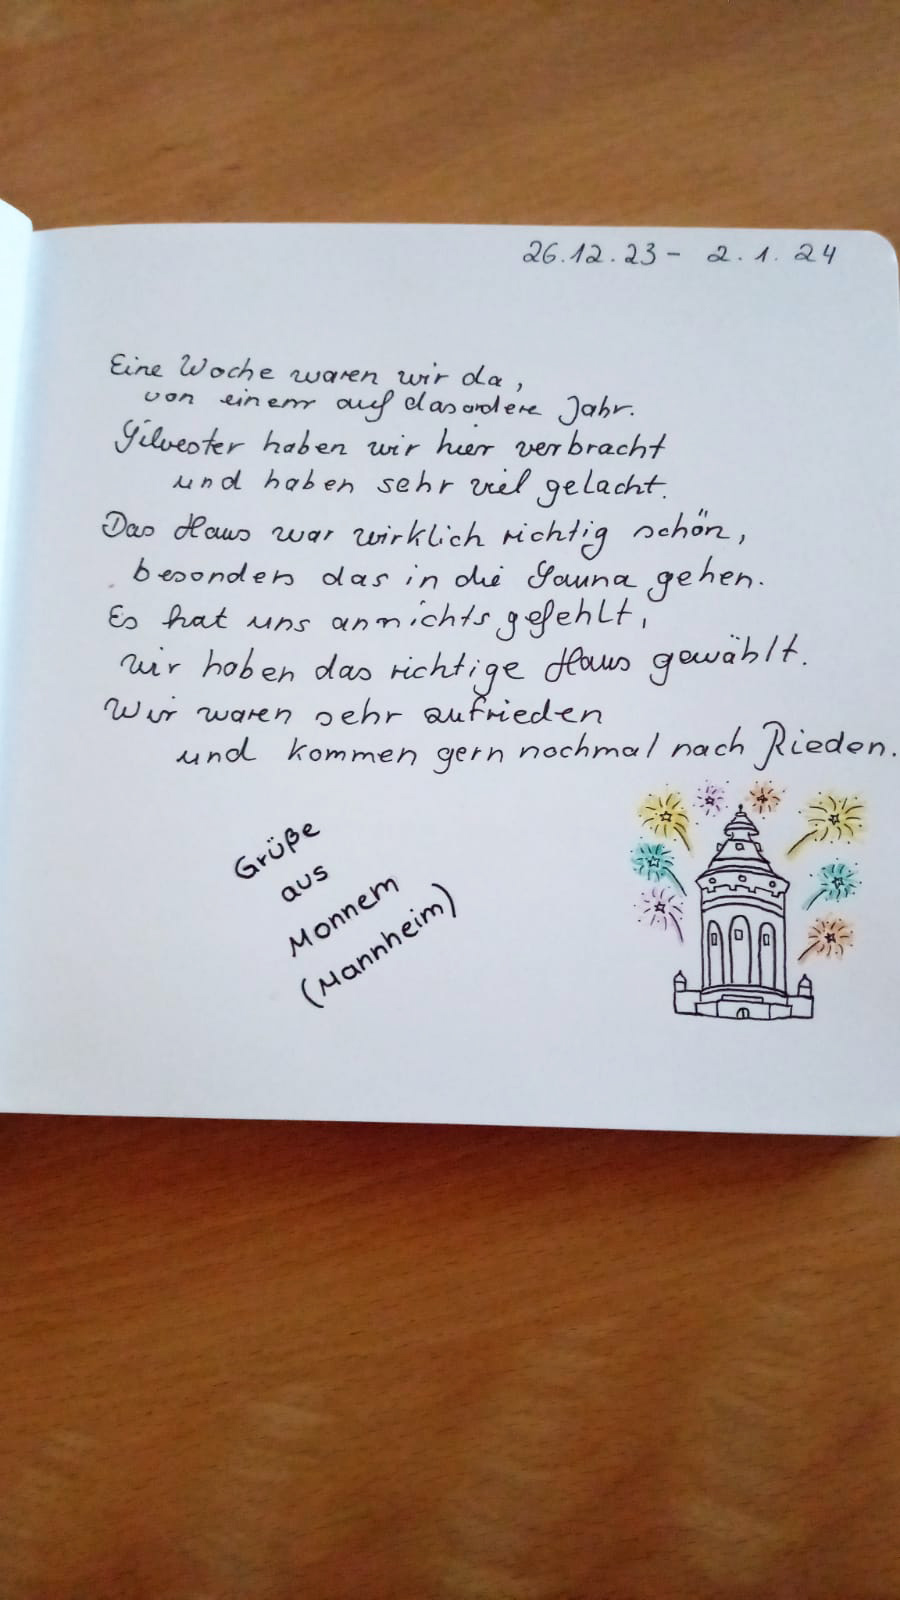 26.12.23 - 2.1.24
Eine Woche waren wir da,
von einem auf das andere Jahr.
Silvester haben wir hier verbracht
und haben sehr viel gelacht.
Das Haus war wirklich richtig schön,
besonders das in die Sauna gehen.
Es hat uns an nichts gefehlt,
wir haben das richtige Haus gewählt.
Wir waren sehr zufrieden
und kommen gern nochmal nach Rieden.
Grüße
aus
Monnem
(Mannheim)